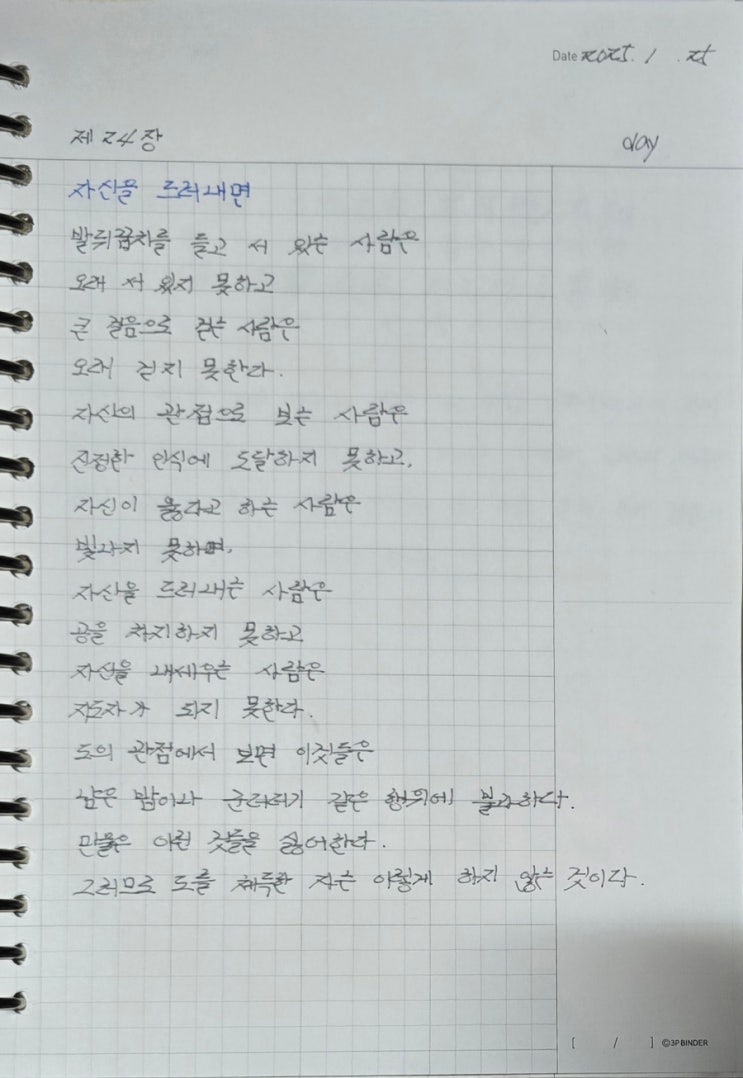 Date 2025. 1 . 25
제 24 장
day
자신을 드러내면
발뒤꿈치를 들고 서 있는 사람은
오래 서 있지 못하고
큰 걸음으로 걷는 사람은
오래 걷지 못한다.
자신의 관점으로 보는 사람은
진정한 인식에 도달하지 못하고,
자신이 옳다고 하는 사람은
빛나지 못하며,
자신을 드러내는 사람은
공을 차지하지 못하고
자신을 내세우는 사람은
지도자가 되지 못한다.
도의 관점에서 보면 이것들은
남은 밥이나 군더더기 같은 행위에 불과하다.
만물은 이런 것들을 싫어한다.
그러므로 도를 체득한 자는 이렇게 하지 않는 것이다.
[ / ] ©3P BINDER